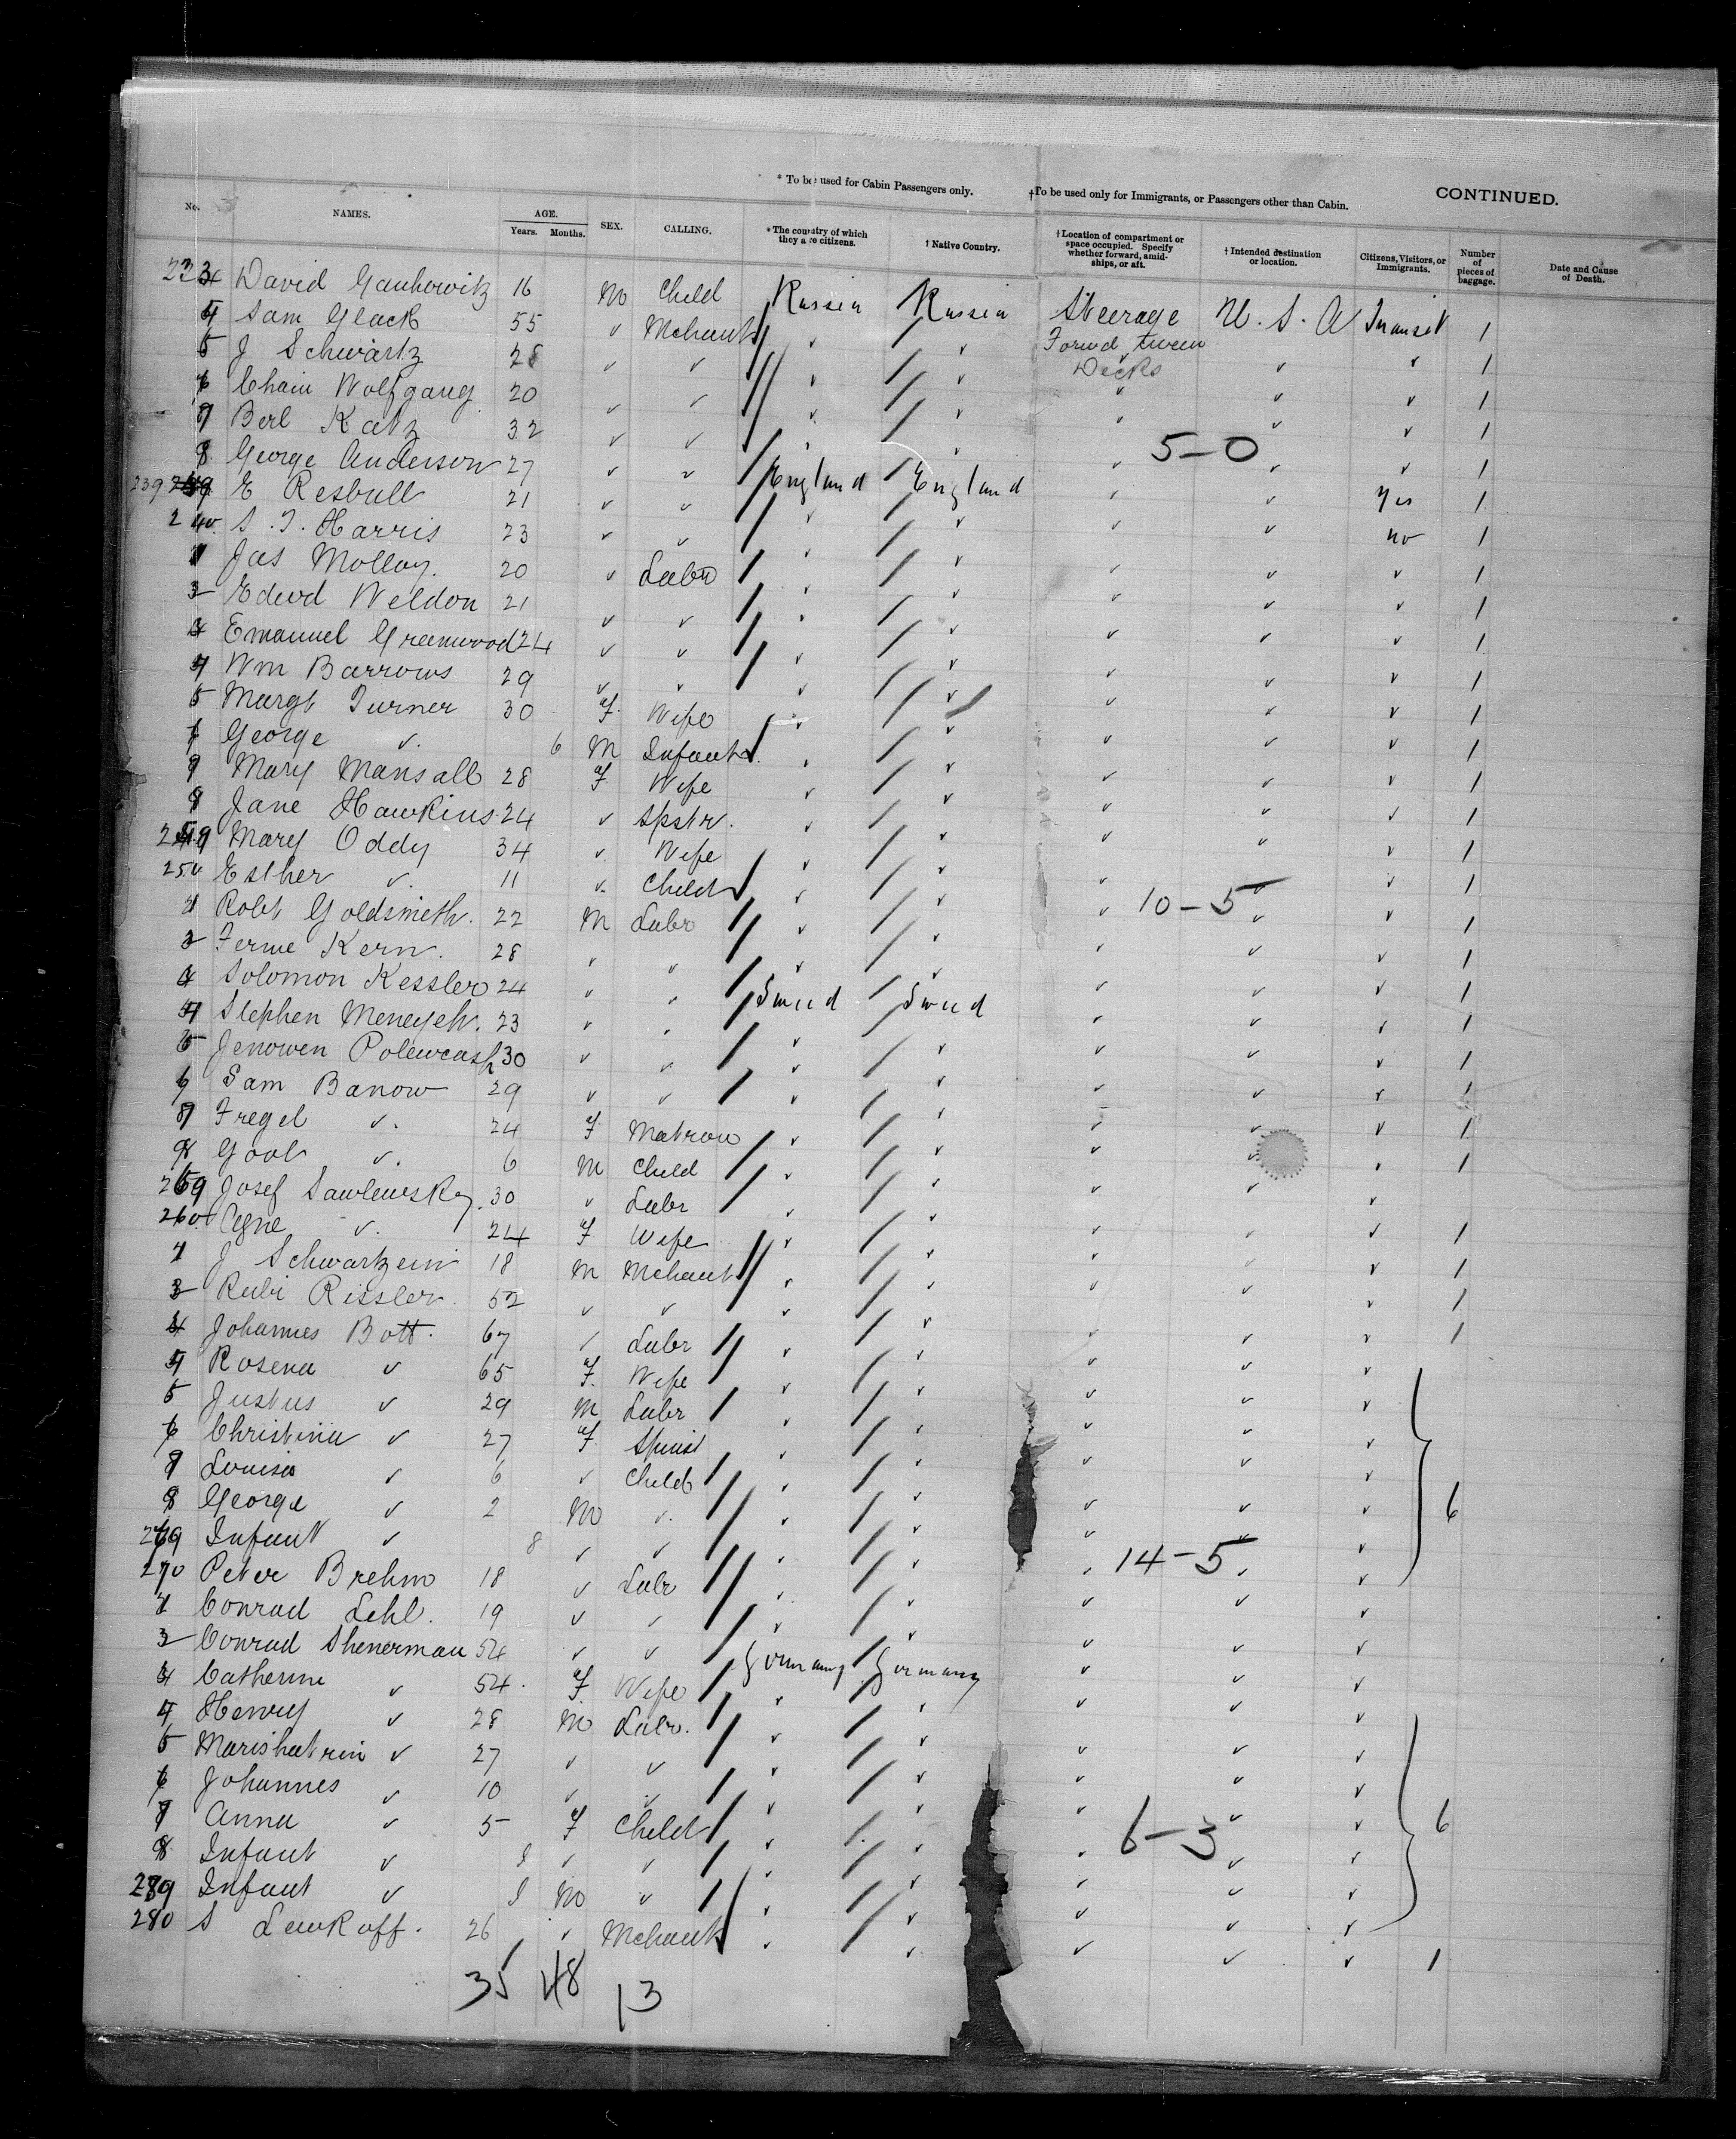 * To be used for Cabin Passengers only. †To be used only for Immigrants, or Passengers other than Cabin. CONTINUED.
No. NAMES. AGE. Years. Months. SEX. CALLING. * The country of which they are citizens. † Native Country. † Location of compartment or space occupied. Specify whether forward, amidships, or aft. † Intended destination or location. Citizens, Visitors, or Immigrants. Number of pieces of baggage. Date and Cause of Death.
233 David 16 m Child Russia Russia Steerage U. S. A Transit 1
4 Sam Glack 55 v Mchant v v Forwd tween Decks v v 1
5 J Schwartz 28 v v v v v v v 1
6 Chaim Wolfgang 20 v v v v v v v 1
7 Berl Katz 32 v v v v v v v 1
5-0
8 George Anderson 27 v v England England v v Yes 1
239 E Resbull 21 v v v v v v no 1
240 S. T. Harris 23 v v v v v v v 1
1 Jas Molloy 20 v Labr v v v v v 1
2 Edwd Weldon 21 v v v v v v v 1
3 Emanuel Greenwood 24 v v v v v v v 1
4 Wm Barrows 29 v v v v v v v 1
5 Margt Turner 30 F Wife v v v v v 1
6 George v 6 M Infant v v v v v 1
7 Mary Mansall 28 F Wife v v v v v 1
8 Jane Hawkins 24 v Spstr v v v v v 1
249 Mary Oddy 34 v Wife v v v v v 1
250 Esther v 11 v Child v v v v v 1
10-5
1 Robt Goldsmith 22 M Labr v v v v v 1
2 Kern 28 v v v v v v v 1
3 Solomon Kessler 24 v v Swed Swed v v v 1
4 Stephen 23 v v v v v v v 1
5 30 v v v v v v v 1
6 Sam Banow 29 v v v v v v v 1
7 Fregel v 24 F Matron v v v v v 1
8 v 6 M Child v v v v v
259 Josef 30 v Labr v v v v v 1
260 v 24 F Wife v v v v v 1
1 J 18 M Mchant v v v v v 1
2 Rubi Rissler 52 v v v v v v v 1
3 Johannes Bott 67 v Labr v v v v v
4 Rosena v 65 F Wife v v v v v
5 Justus v 29 M Labr v v v v v
6 Christina v 27 F v v v v v
7 Louisa v 6 v Child v v v v v 6
8 George v 2 M v v v v v v
269 Infant v 8 v v v v v v v
14-5
270 Peter Brehm 18 v Labr v v v v v
1 Conrad Lehl 19 v v v v v v v
2 Conrad Shenerman 54 v v Germany Germany v v v
3 Catherine v 54 F Wife v v v v v
4 Henry v 28 M Labr v v v v v
5 v 27 v v v v v v v
6 Johannes v 10 v v v v v v v 6
6-3
7 Anna v 5 F Child v v v v v
8 Infant v v v v v v v v
279 Infant v M v v v v v v
280 S 26 v Mchant v v v v v 1
35 48 13